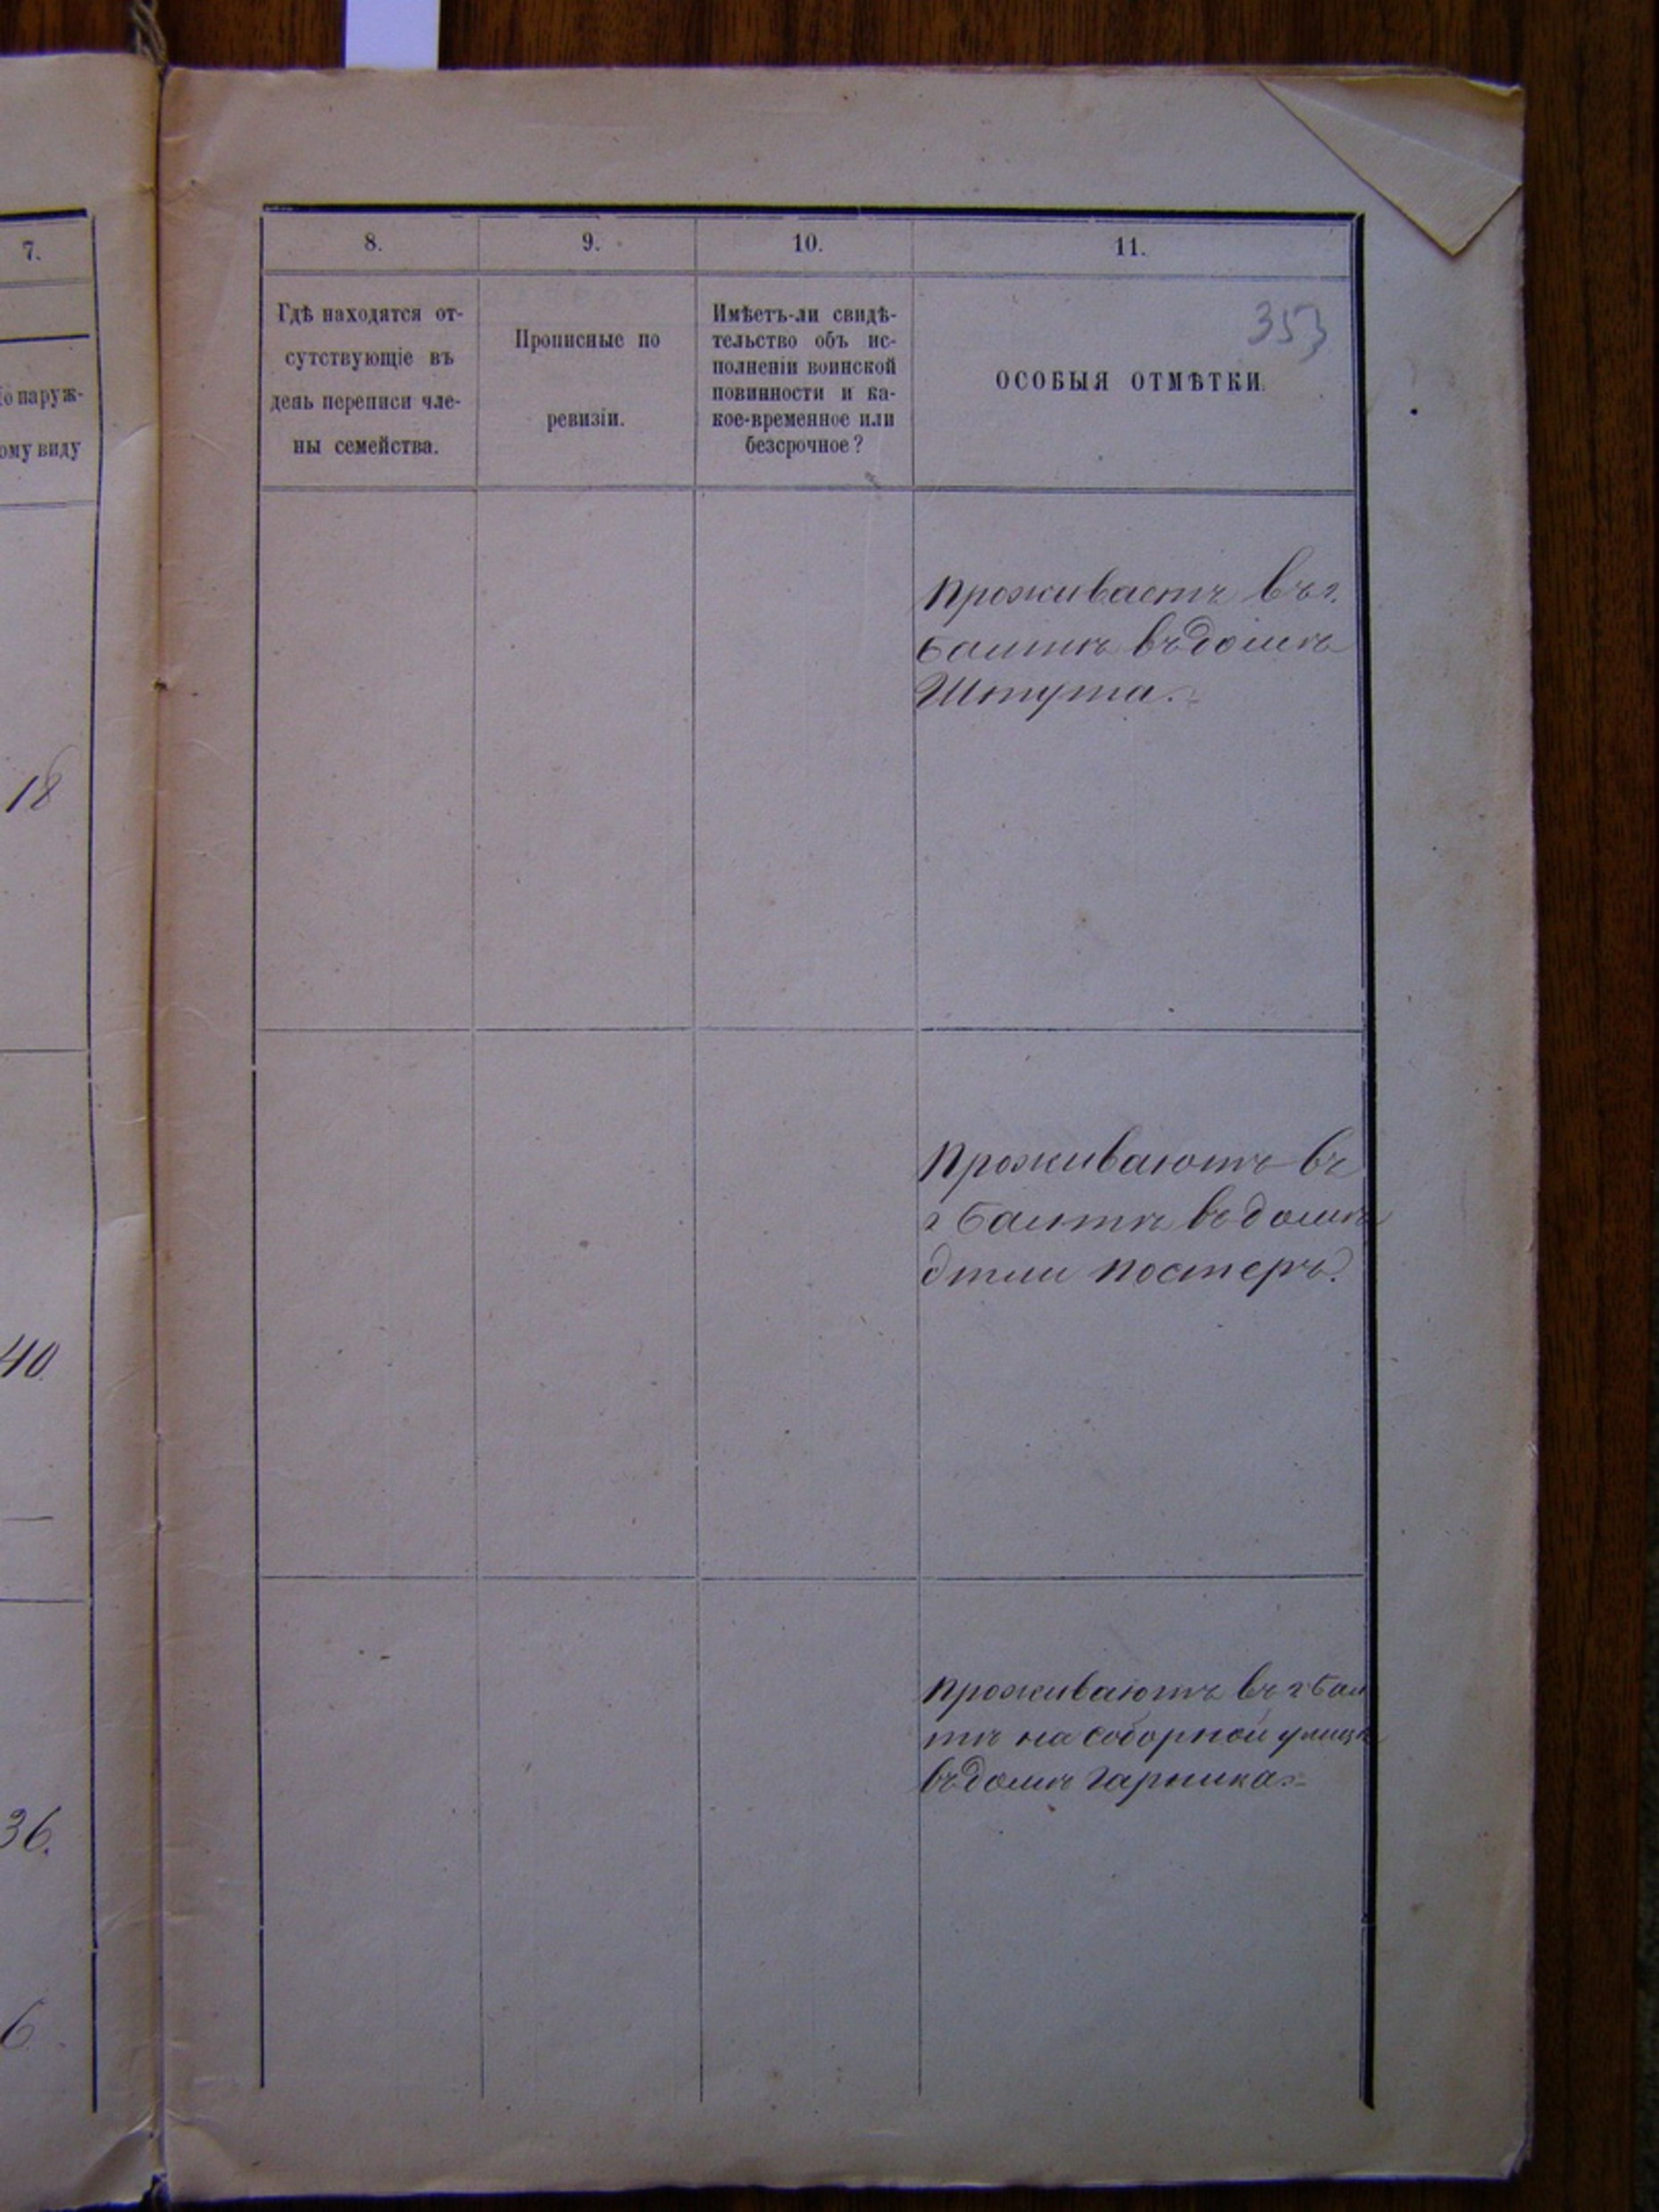 7.
По наруж-
ому виду
18
40.
36.
6.
8.
Гдѣ находятся от-
сутствующіе въ
день переписи чле-
ны семейства.
9.
Прописные по
ревизіи.
10.
Имѣетъ-ли свидѣ-
тельство объ ис-
полненіи воинской
повинности и ка-
кое-временное или
безсрочное?
11.
353
ОСОБЫЯ ОТМѢТКИ.
Проживаетъ въ г.
Балтѣ въ домѣ
Штута.
Проживаютъ въ
г Балтѣ въ домѣ
Проживаютъ въ г Бал
тѣ на соборной улицѣ
въ домѣ Гарника